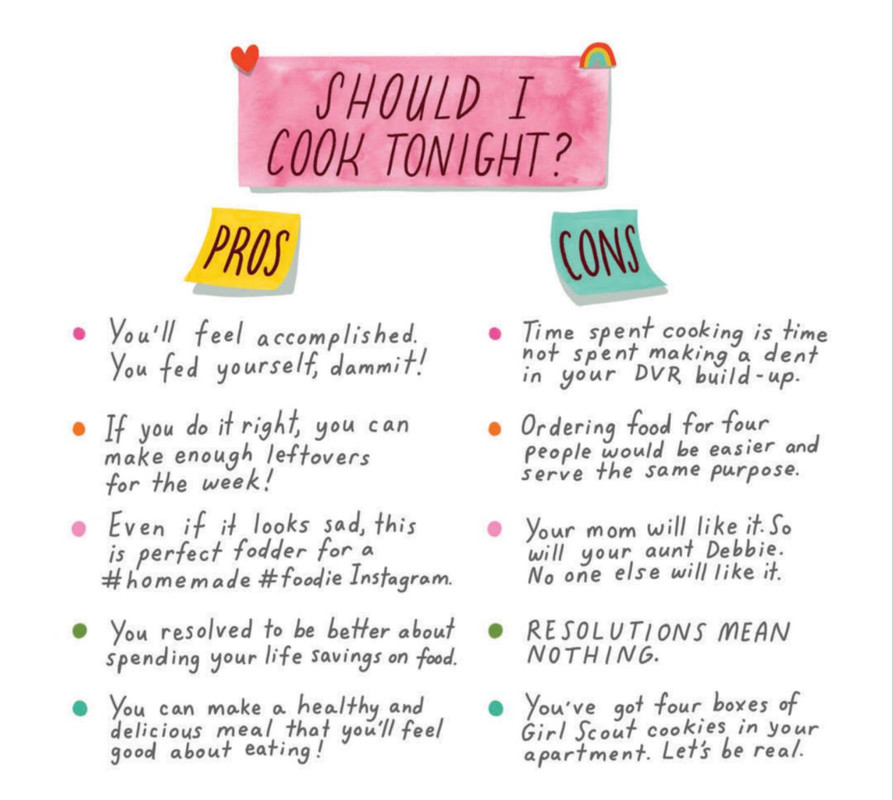 SHOULD I
COOK TONIGHT?
PROS
You'll feel accomplished.
You fed yourself, dammit!
If you do it right, you can
make enough leftovers
for the week!
Even if it looks sad, this
is perfect fodder for a
#homemade #foodie Instagram.
You resolved to be better about
spending your life savings on food.
You can make a healthy and
delicious meal that you'll feel
good about eating!
CONS
Time spent cooking is time
not spent making a dent
in your DVR build-up.
Ordering food for four
people would be easier and
serve the same purpose.
Your mom will like it. So
will your aunt Debbie.
No one else will like it.
RESOLUTIONS MEAN
NOTHING.
You've got four boxes of
Girl Scout cookies in your
apartment. Let's be real.